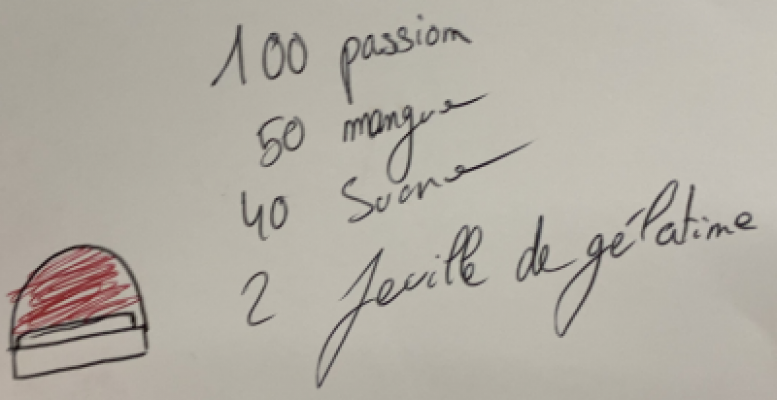 100 passion
50 mangue
40 Sucre
2 feuille de gélatine